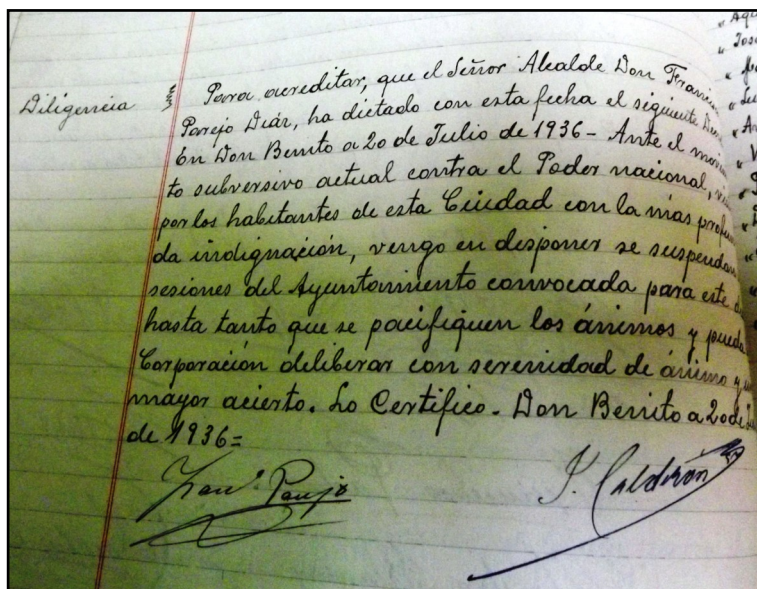 Diligencia
Para acreditar, que el Señor Alcalde Don
Parejo Diáz, ha dictado con esta fecha el siguiente
En Don Benito a 20 de Julio de 1936 - Ante el
to subversivo actual contra el Poder nacional,
por los habitantes de esta Ciudad con la mas profun
da indignación, vengo en disponer se suspendan
sesiones del Ayuntamiento convocada para este
hasta tanto que se pacifiquen los ánimos y pueda
Corporación deliberar con serenidad de ánimo y
mayor acierto. Lo Certifico. - Don Benito a 20 de
de 1936 =
Franᶜᵒ Parejo
Calderón